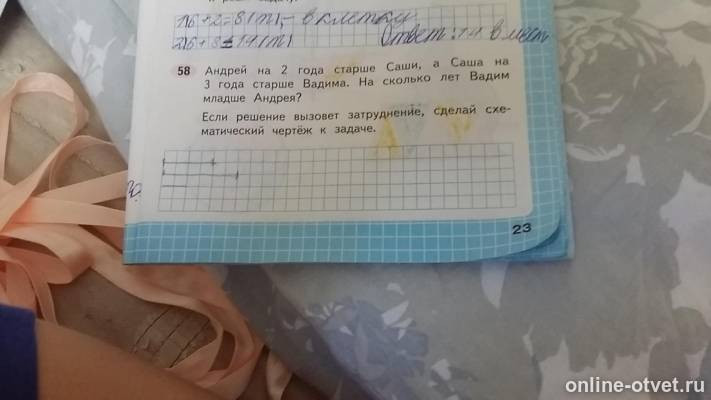 1)6+2=8(т)- в клетку
2)6+8=14(т)
Ответ: 14 в мест
58 Андрей на 2 года старше Саши, а Саша на
3 года старше Вадима. На сколько лет Вадим
младше Андрея?
Если решение вызовет затруднение, сделай схе-
матический чертёж к задаче.
23
online-otvet.ru